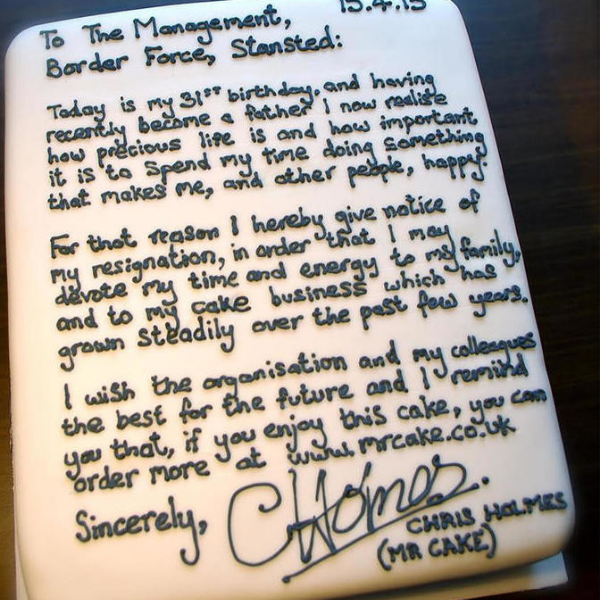 15.4.13
To The Management,
Border Force, Stansted:
Today is my 31st birthday, and having
recently become a father I now realise
how precious life is and how important
it is to spend my time doing something
that makes me, and other people, happy.
For that reason I hereby give notice of
my resignation, in order that I may
devote my time and energy to my family,
and to my cake business which has
grown steadily over the past few years.
I wish the organisation and my colleagues
the best for the future and I remind
you that, if you enjoy this cake, you can
order more at www.mrcake.co.uk
Sincerely,
CHolmes.
CHRIS HOLMES
(MR CAKE)